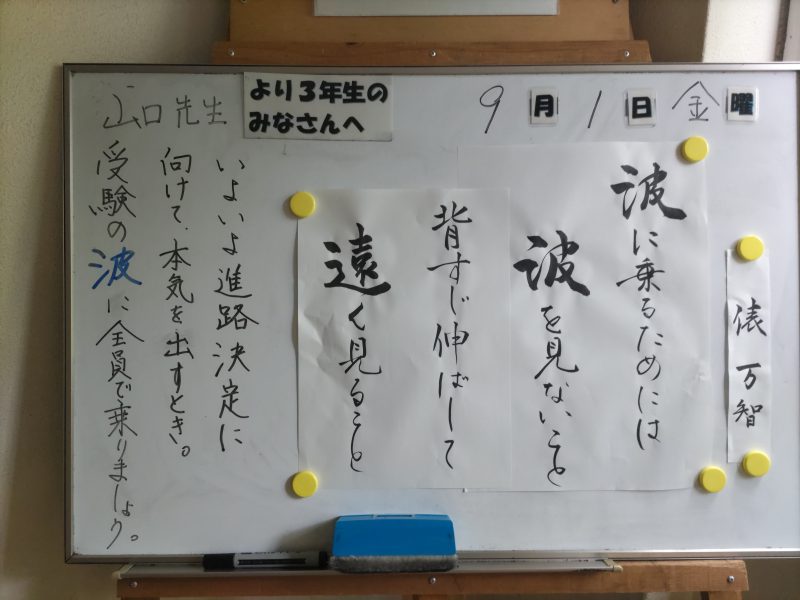 9月1日金曜
俵万智
波に乗るためには
波を見ないこと
背すじ伸ばして
遠く見ること
山口先生より3年生のみなさんへ
いよいよ進路決定に
向けて、本気を出すとき。
受験の波に全員で乗りましょう。